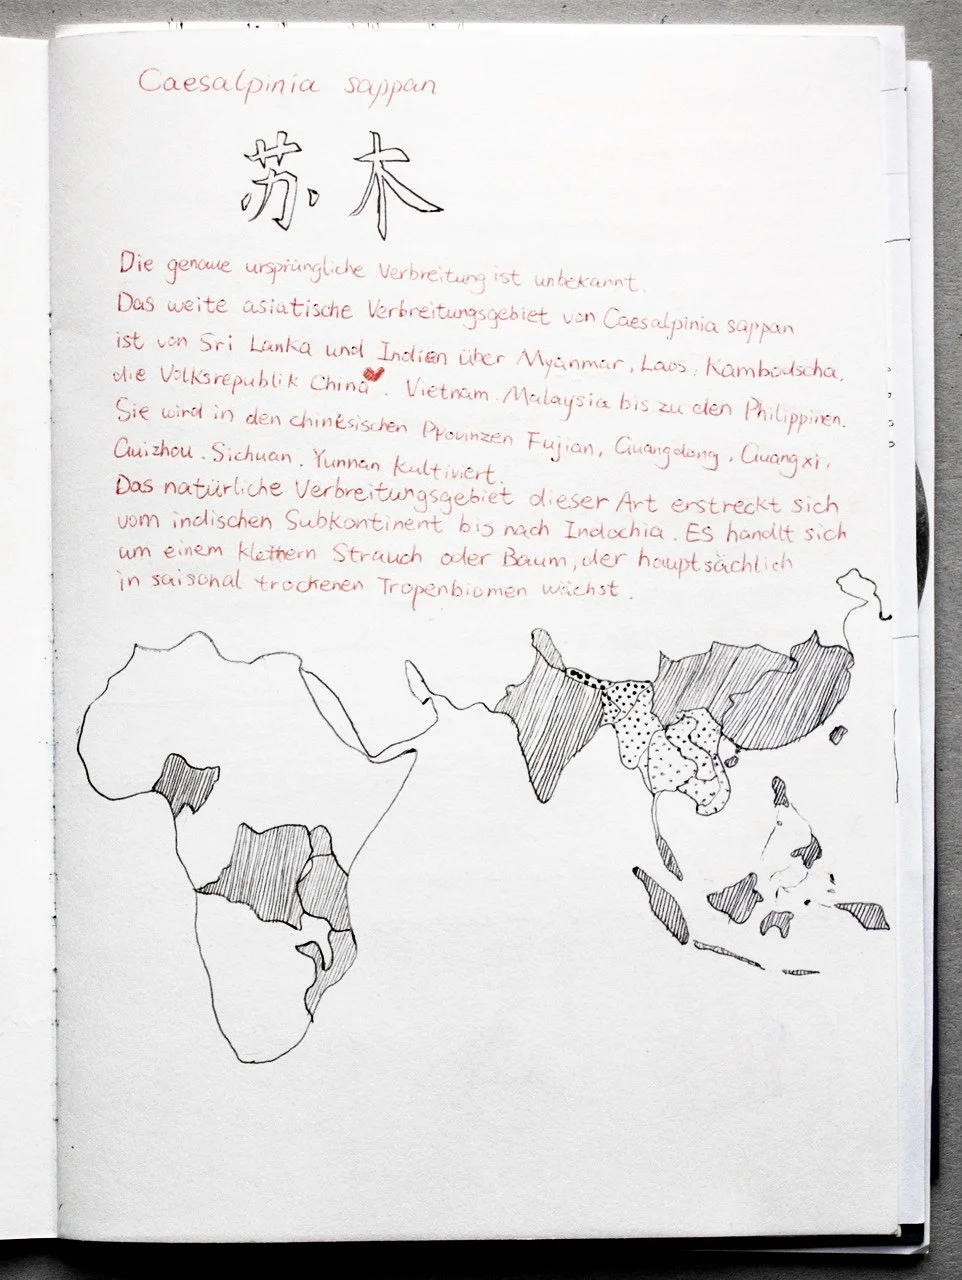 Caesalpinia sappan
苏木
Die genaue ursprüngliche Verbreitung ist unbekannt.
Das weite asiatische Verbreitungsgebiet von Caesalpinia sappan
ist von Sri Lanka und Indien über Myanmar, Laos, Kambodscha,
die Volksrepublik China, Vietnam, Malaysia bis zu den Philippinen.
Sie wird in den chinesischen Provinzen Fujian, Guangdong, Guangxi,
Guizhou, Sichuan, Yunnan kultiviert.
Das natürliche Verbreitungsgebiet dieser Art erstreckt sich
vom indischen Subkontinent bis nach Indochia. Es handlt sich
um einem klettern Strauch oder Baum, der hauptsächlich
in saisonal trockenen Tropenbiomen wächst.